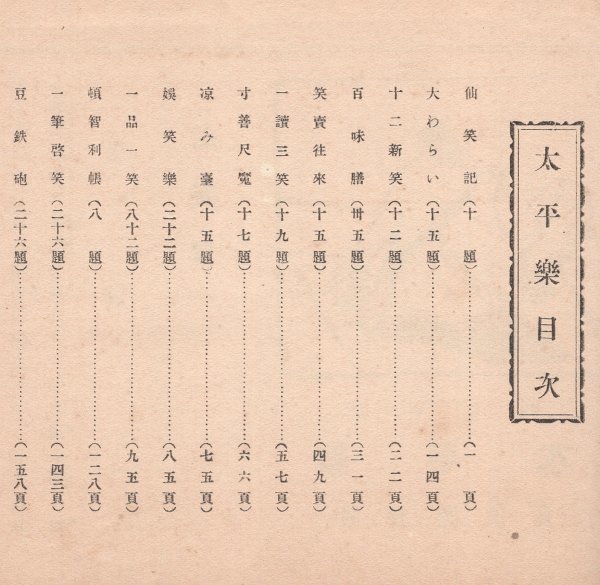 太平樂目次
仙笑記(十題)…………(一頁)
大わらい(十五題)…………(一四頁)
十二新笑(十二題)…………(二二頁)
百味膳(卅五題)…………(三一頁)
笑賣往來(十五題)…………(四九頁)
一讀三笑(十九題)…………(五七頁)
寸善尺魔(十七題)…………(六六頁)
凉み臺(十五題)…………(七五頁)
娯笑樂(二十二題)…………(八五頁)
一品一笑(八十二題)…………(九五頁)
頓智利帳(八題)…………(一二八頁)
一筆啓笑(二十六題)…………(一四三頁)
豆鉄砲(二十六題)…………(一五八頁)